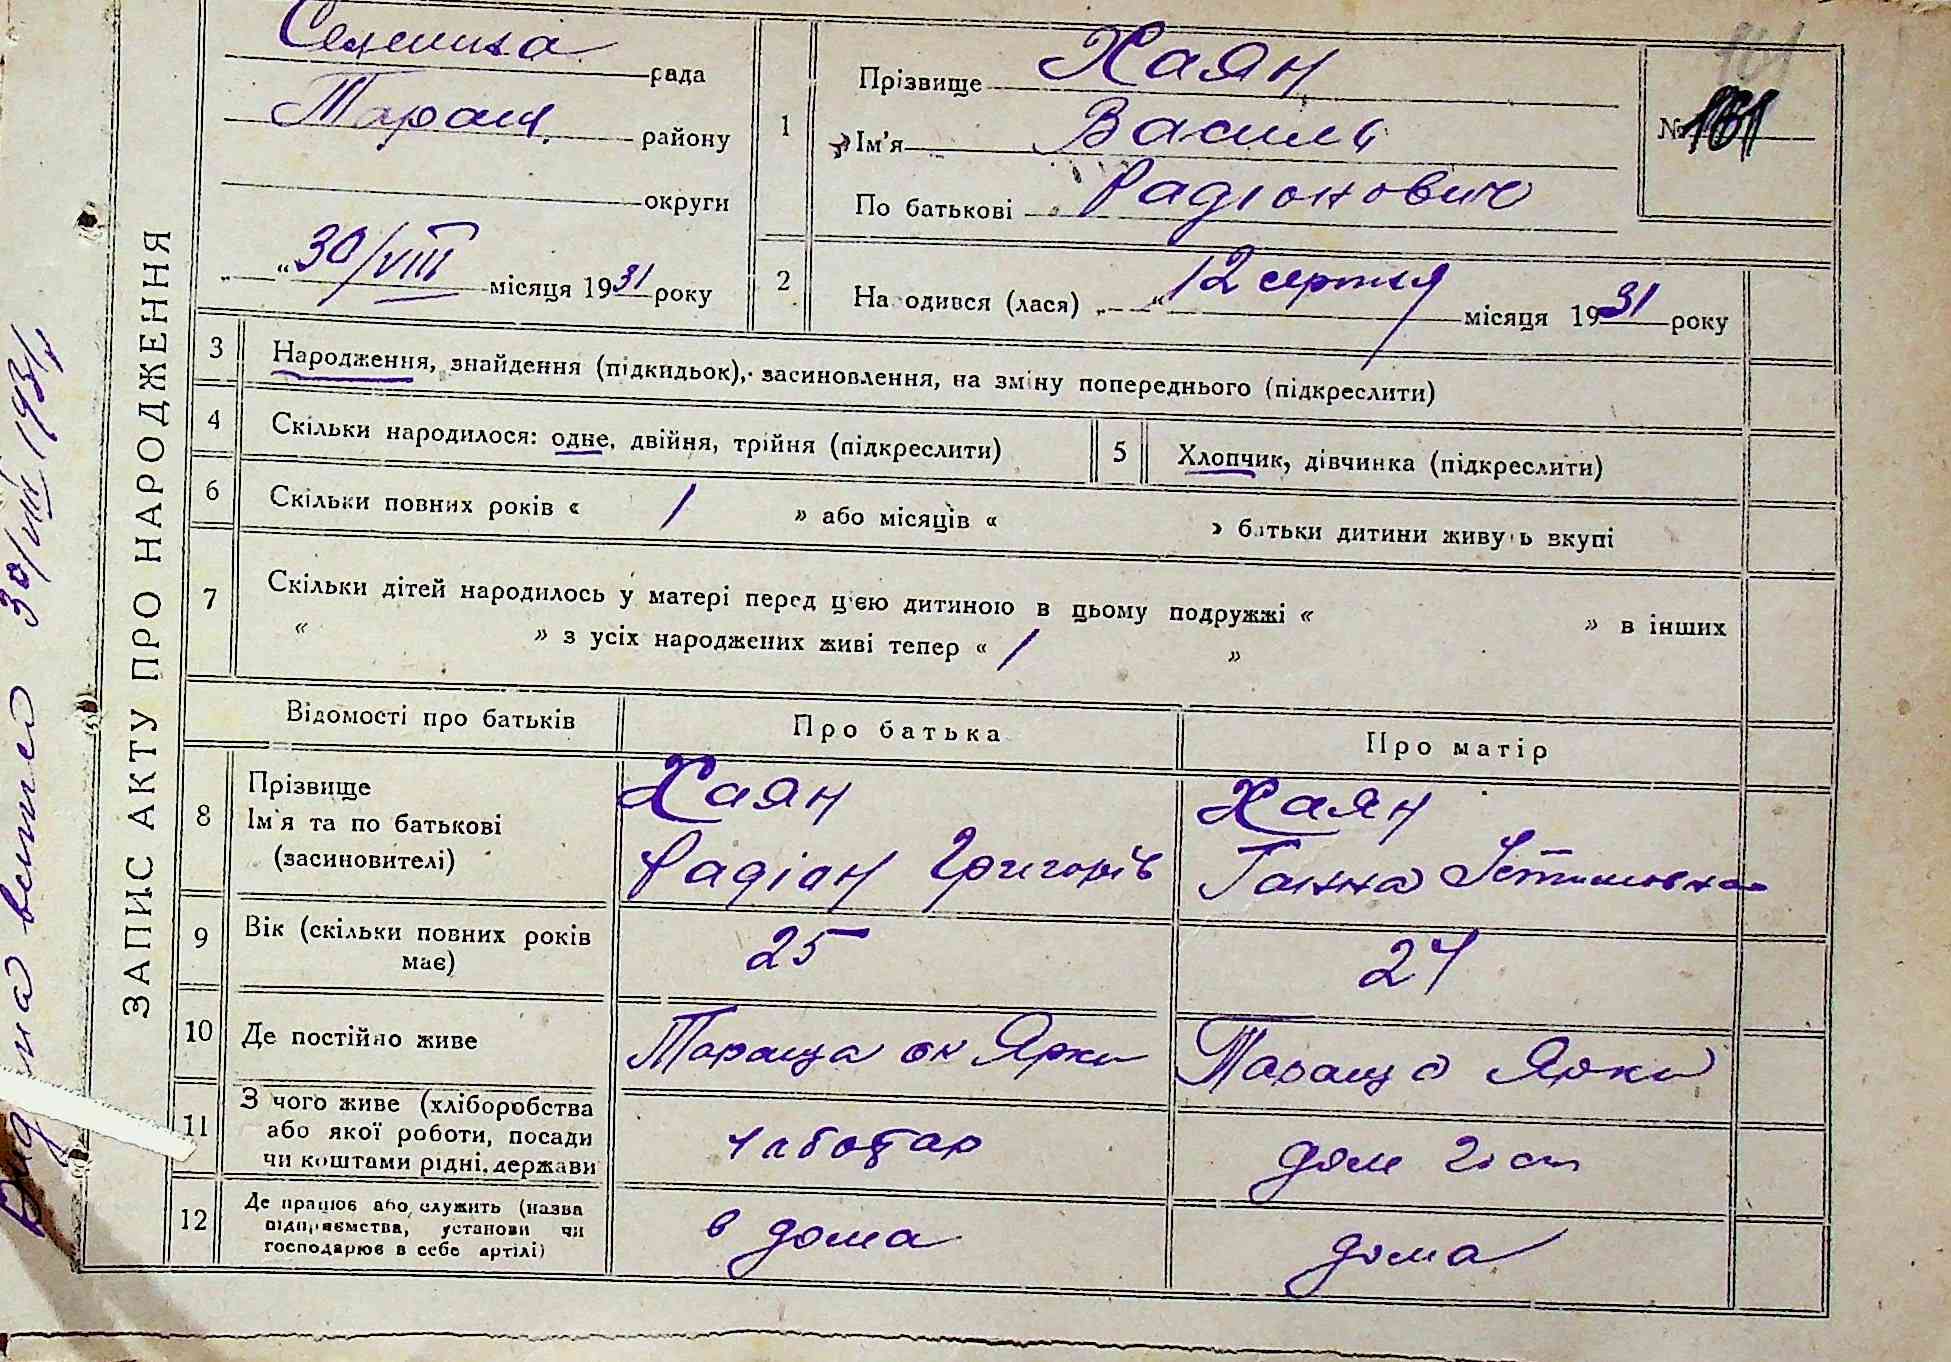 ЗАПИС АКТУ ПРО НАРОДЖЕННЯ
Селищна рада
Таращ. району
округи
„ “ 30/VIII місяця 1931 року
1
Прізвище Хаян
Ім'я Василь
По батькові Радіонович
№ 161
161
2
Народився (лася) „ “ 12 серпня місяця 1931 року
3 Народження, знайдення (підкидьок), засиновлення, на зміну попереднього (підкреслити)
4 Скільки народилося: одне, двійня, трійня (підкреслити)
5 Хлопчик, дівчинка (підкреслити)
6 Скільки повних років « 1 » або місяців « » батьки дитини живуть вкупі
7 Скільки дітей народилось у матері перед цією дитиною в цьому подружжі « » в інших
« » з усіх народжених живі тепер « 1 »
Відомості про батьків Про батька Про матір
8 Прізвище
Ім'я та по батькові
(засиновителі)
Хаян
Радіан Григорів
Хаян
Ганна
9 Вік (скільки повних років
має)
25
24
10 Де постійно живе
Тараща Ярки
Тараща Ярки
11 З чого живе (хліборобства
або якої роботи, посади
чи коштами рідні, держави
дом госп
12 Де працює або служить (назва
підприємства, установи чи
господарює в себе артілі)
в дома
дома
30/VIII 1931 р